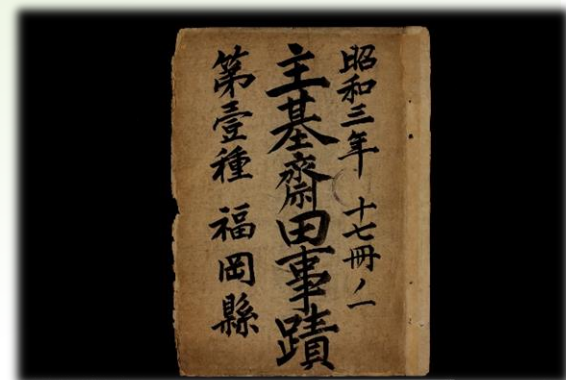 昭和三年 十七冊ノ一
主基齋田事蹟
第壹種 福岡縣